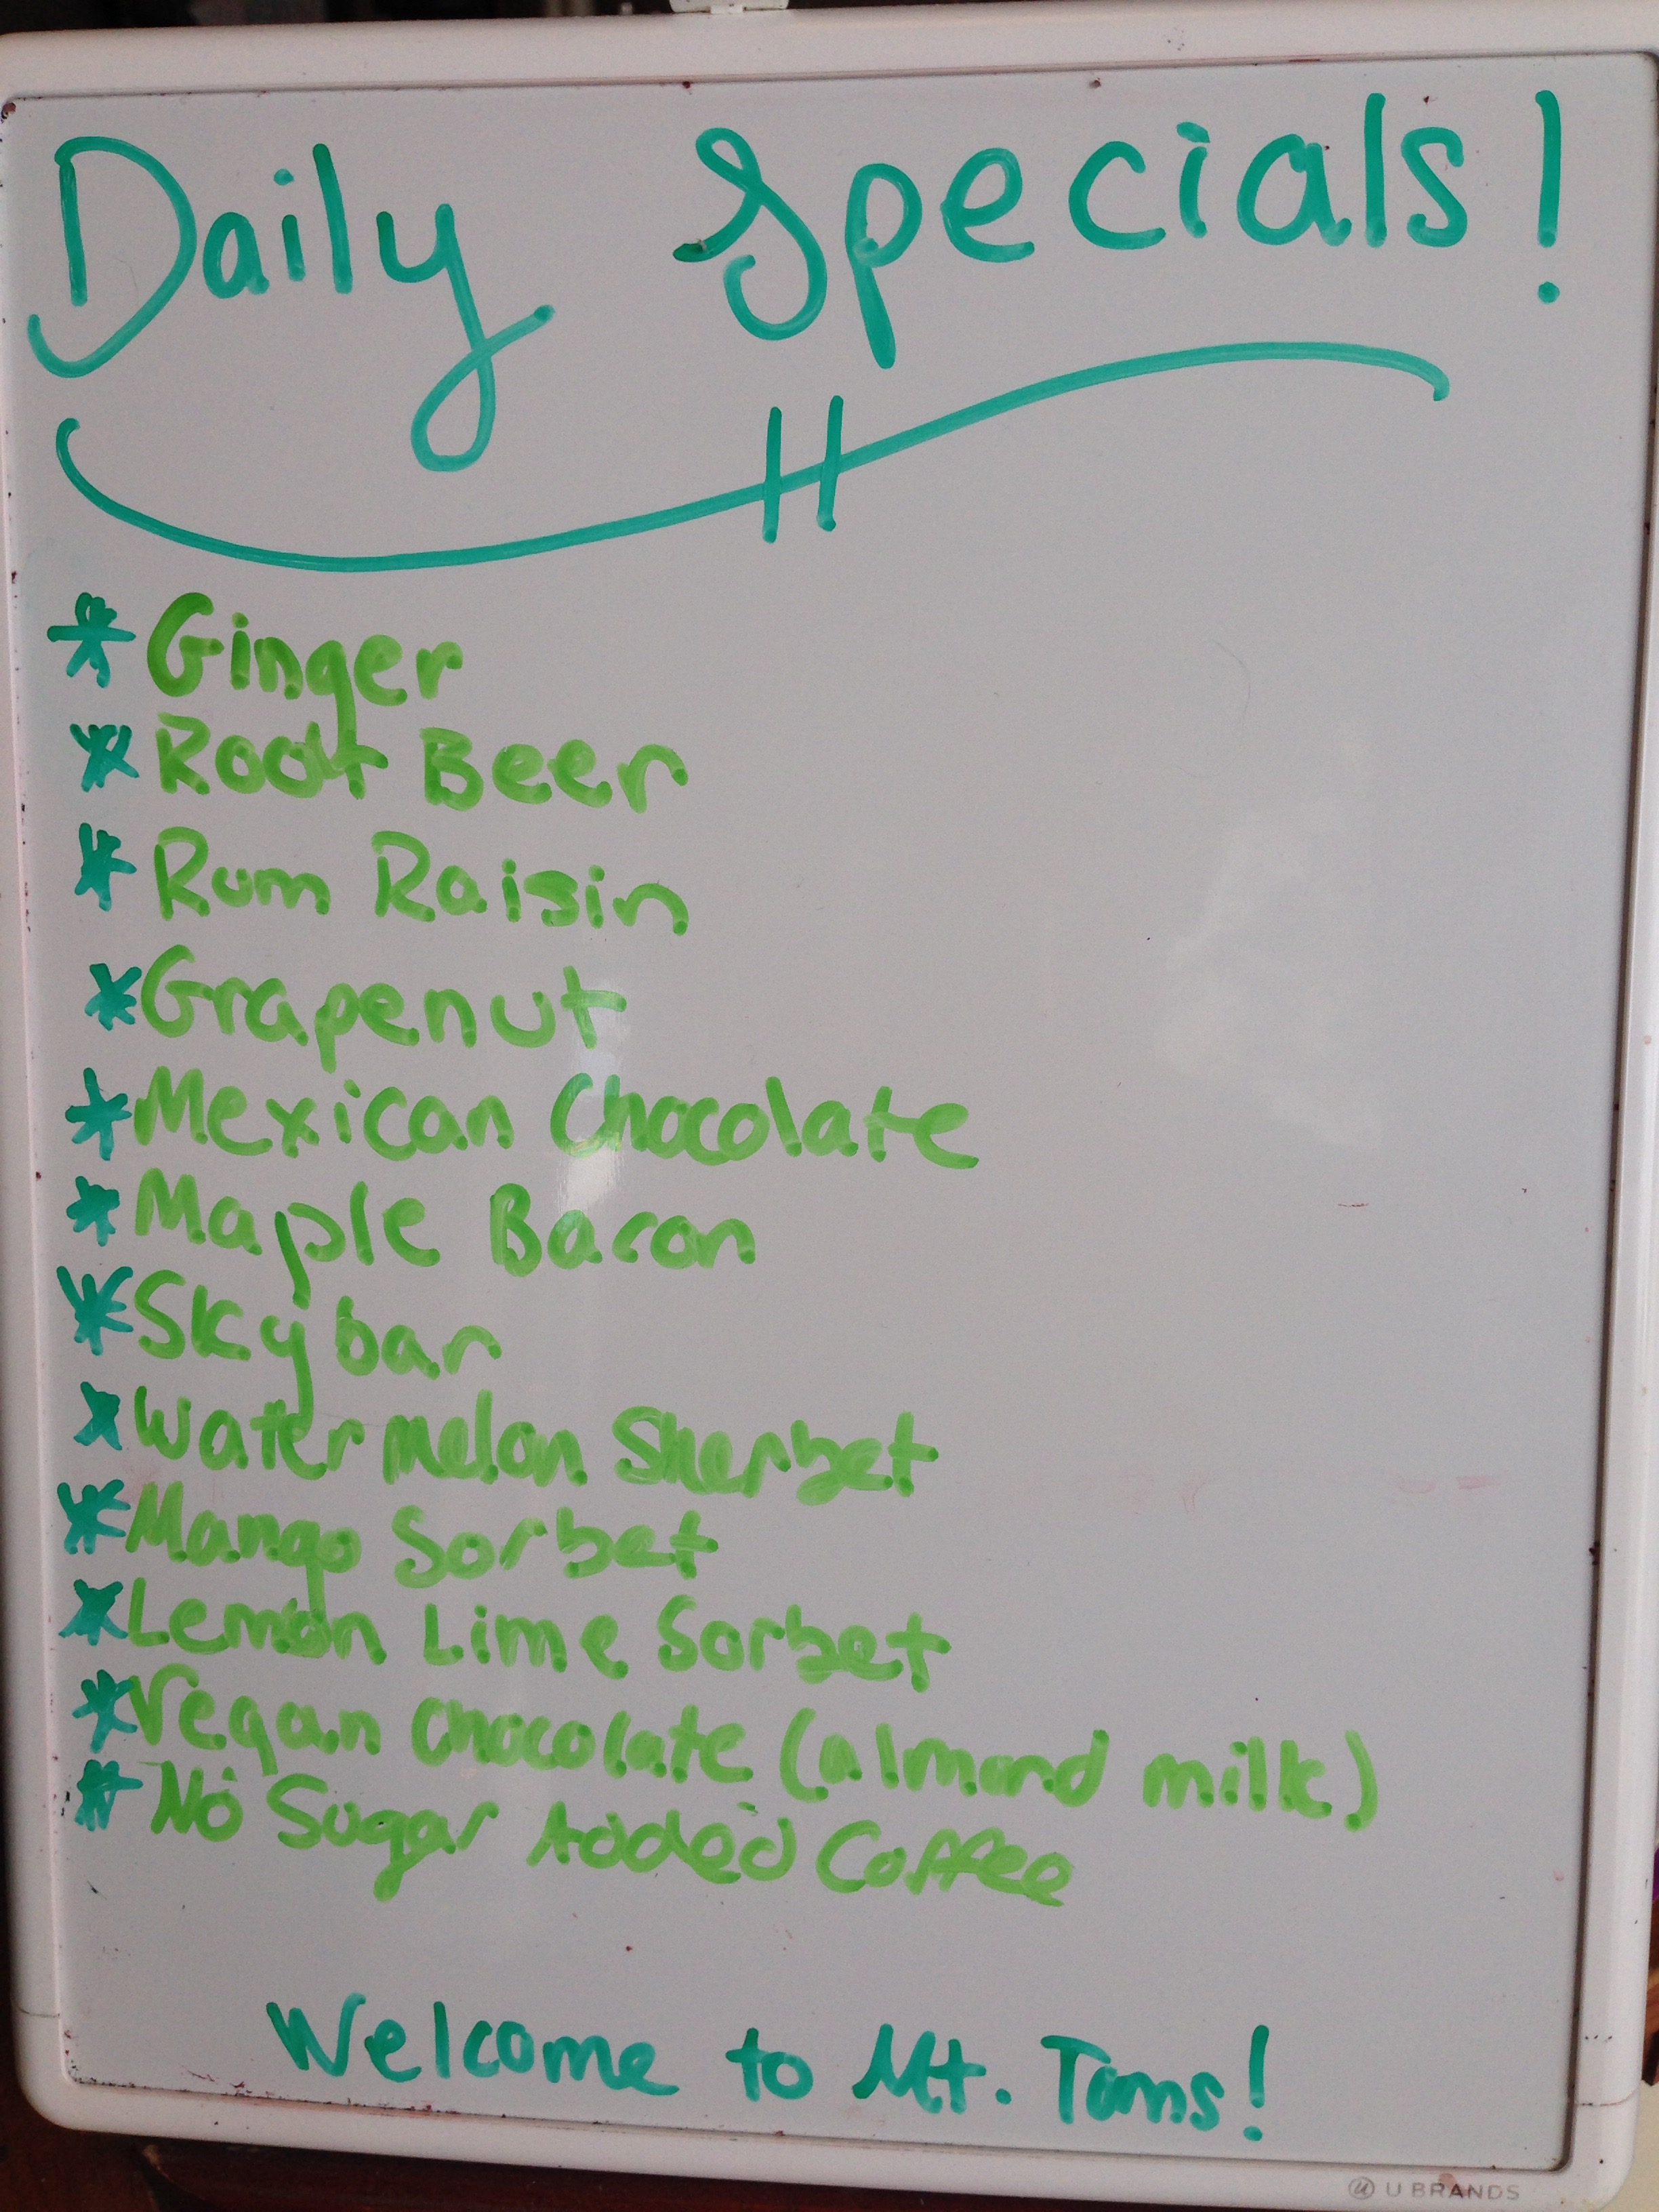 Daily Specials!
* Ginger
* Root Beer
* Rum Raisin
* Grapenut
* Mexican Chocolate
* Maple Bacon
* Skybar
* Watermelon Sherbet
* Mango Sorbet
* Lemon Lime Sorbet
* Vegan Chocolate (almond milk)
* No Sugar Added Coffee
Welcome to Mt. Toms!
U BRANDS